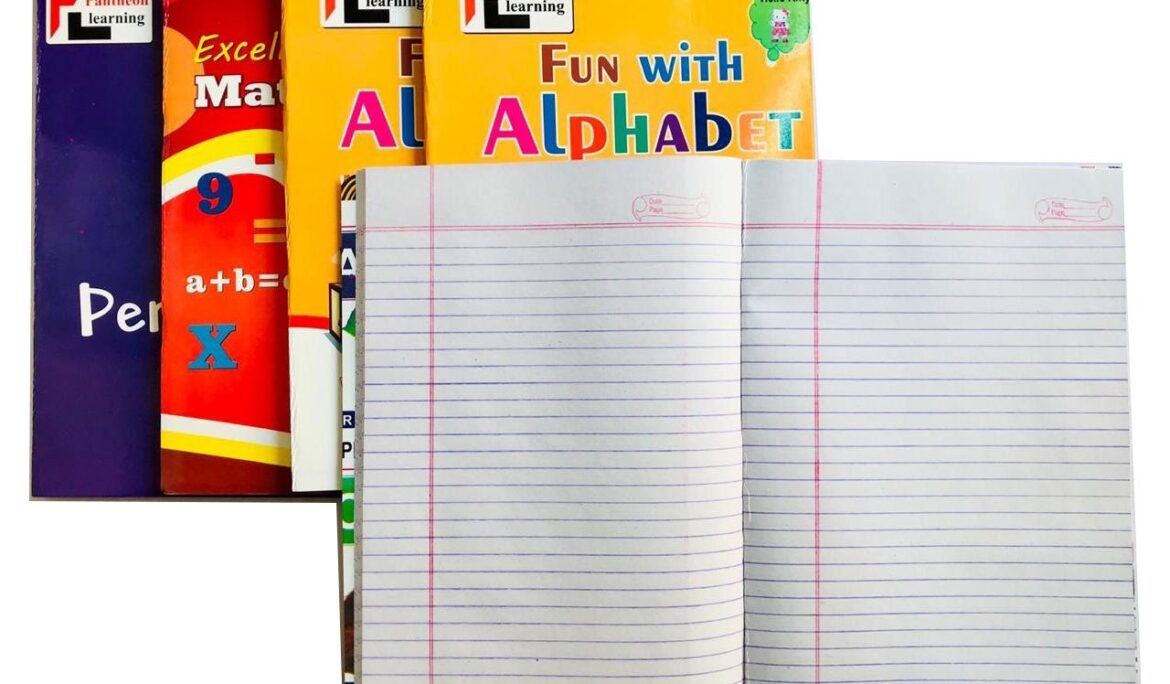 Pantheon
learning
Per
Excel
Mat
9
=
a+b=c
X
learning
F
Al
learning
Fun with
Alphabet
Date
Page
Date
Page
A
R
P